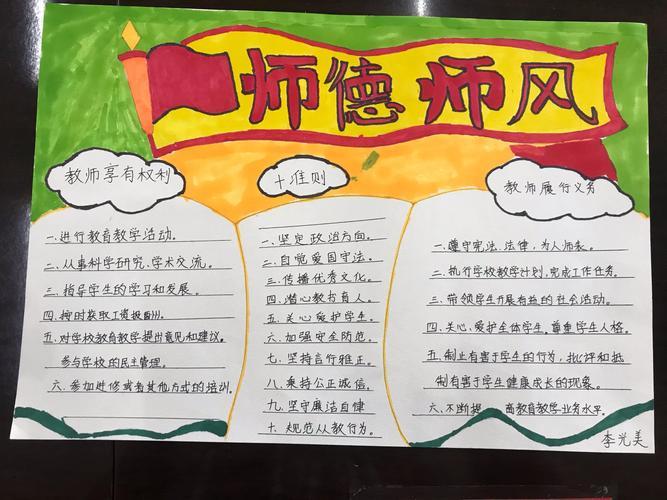 师德师风
教师享有权利
一、进行教育教学活动。
二、从事科学研究、学术交流。
三、指导学生的学习和发展。
四、按时获取工资报酬。
五、对学校教育教学提出意见和建议。
参与学校的民主管理。
六、参加进修或者其他方式的培训。
十准则
一、坚定政治方向。
二、自觉爱国守法。
三、传播优秀文化。
四、潜心教书育人。
五、关心爱护学生。
六、加强安全防范。
七、坚持言行雅正。
八、秉持公正诚信。
九、坚守廉洁自律
十、规范从教行为。
教师履行义务
一、遵守宪法、法律，为人师表。
二、执行学校教学计划，完成工作任务。
三、带领学生开展有益的社会活动。
四、关心、爱护全体学生。尊重学生人格。
五、制止有害于学生的行为，批评和抵
制有害于学生健康成长的现象。
六、不断提 高教育教学业务水平。
李光美